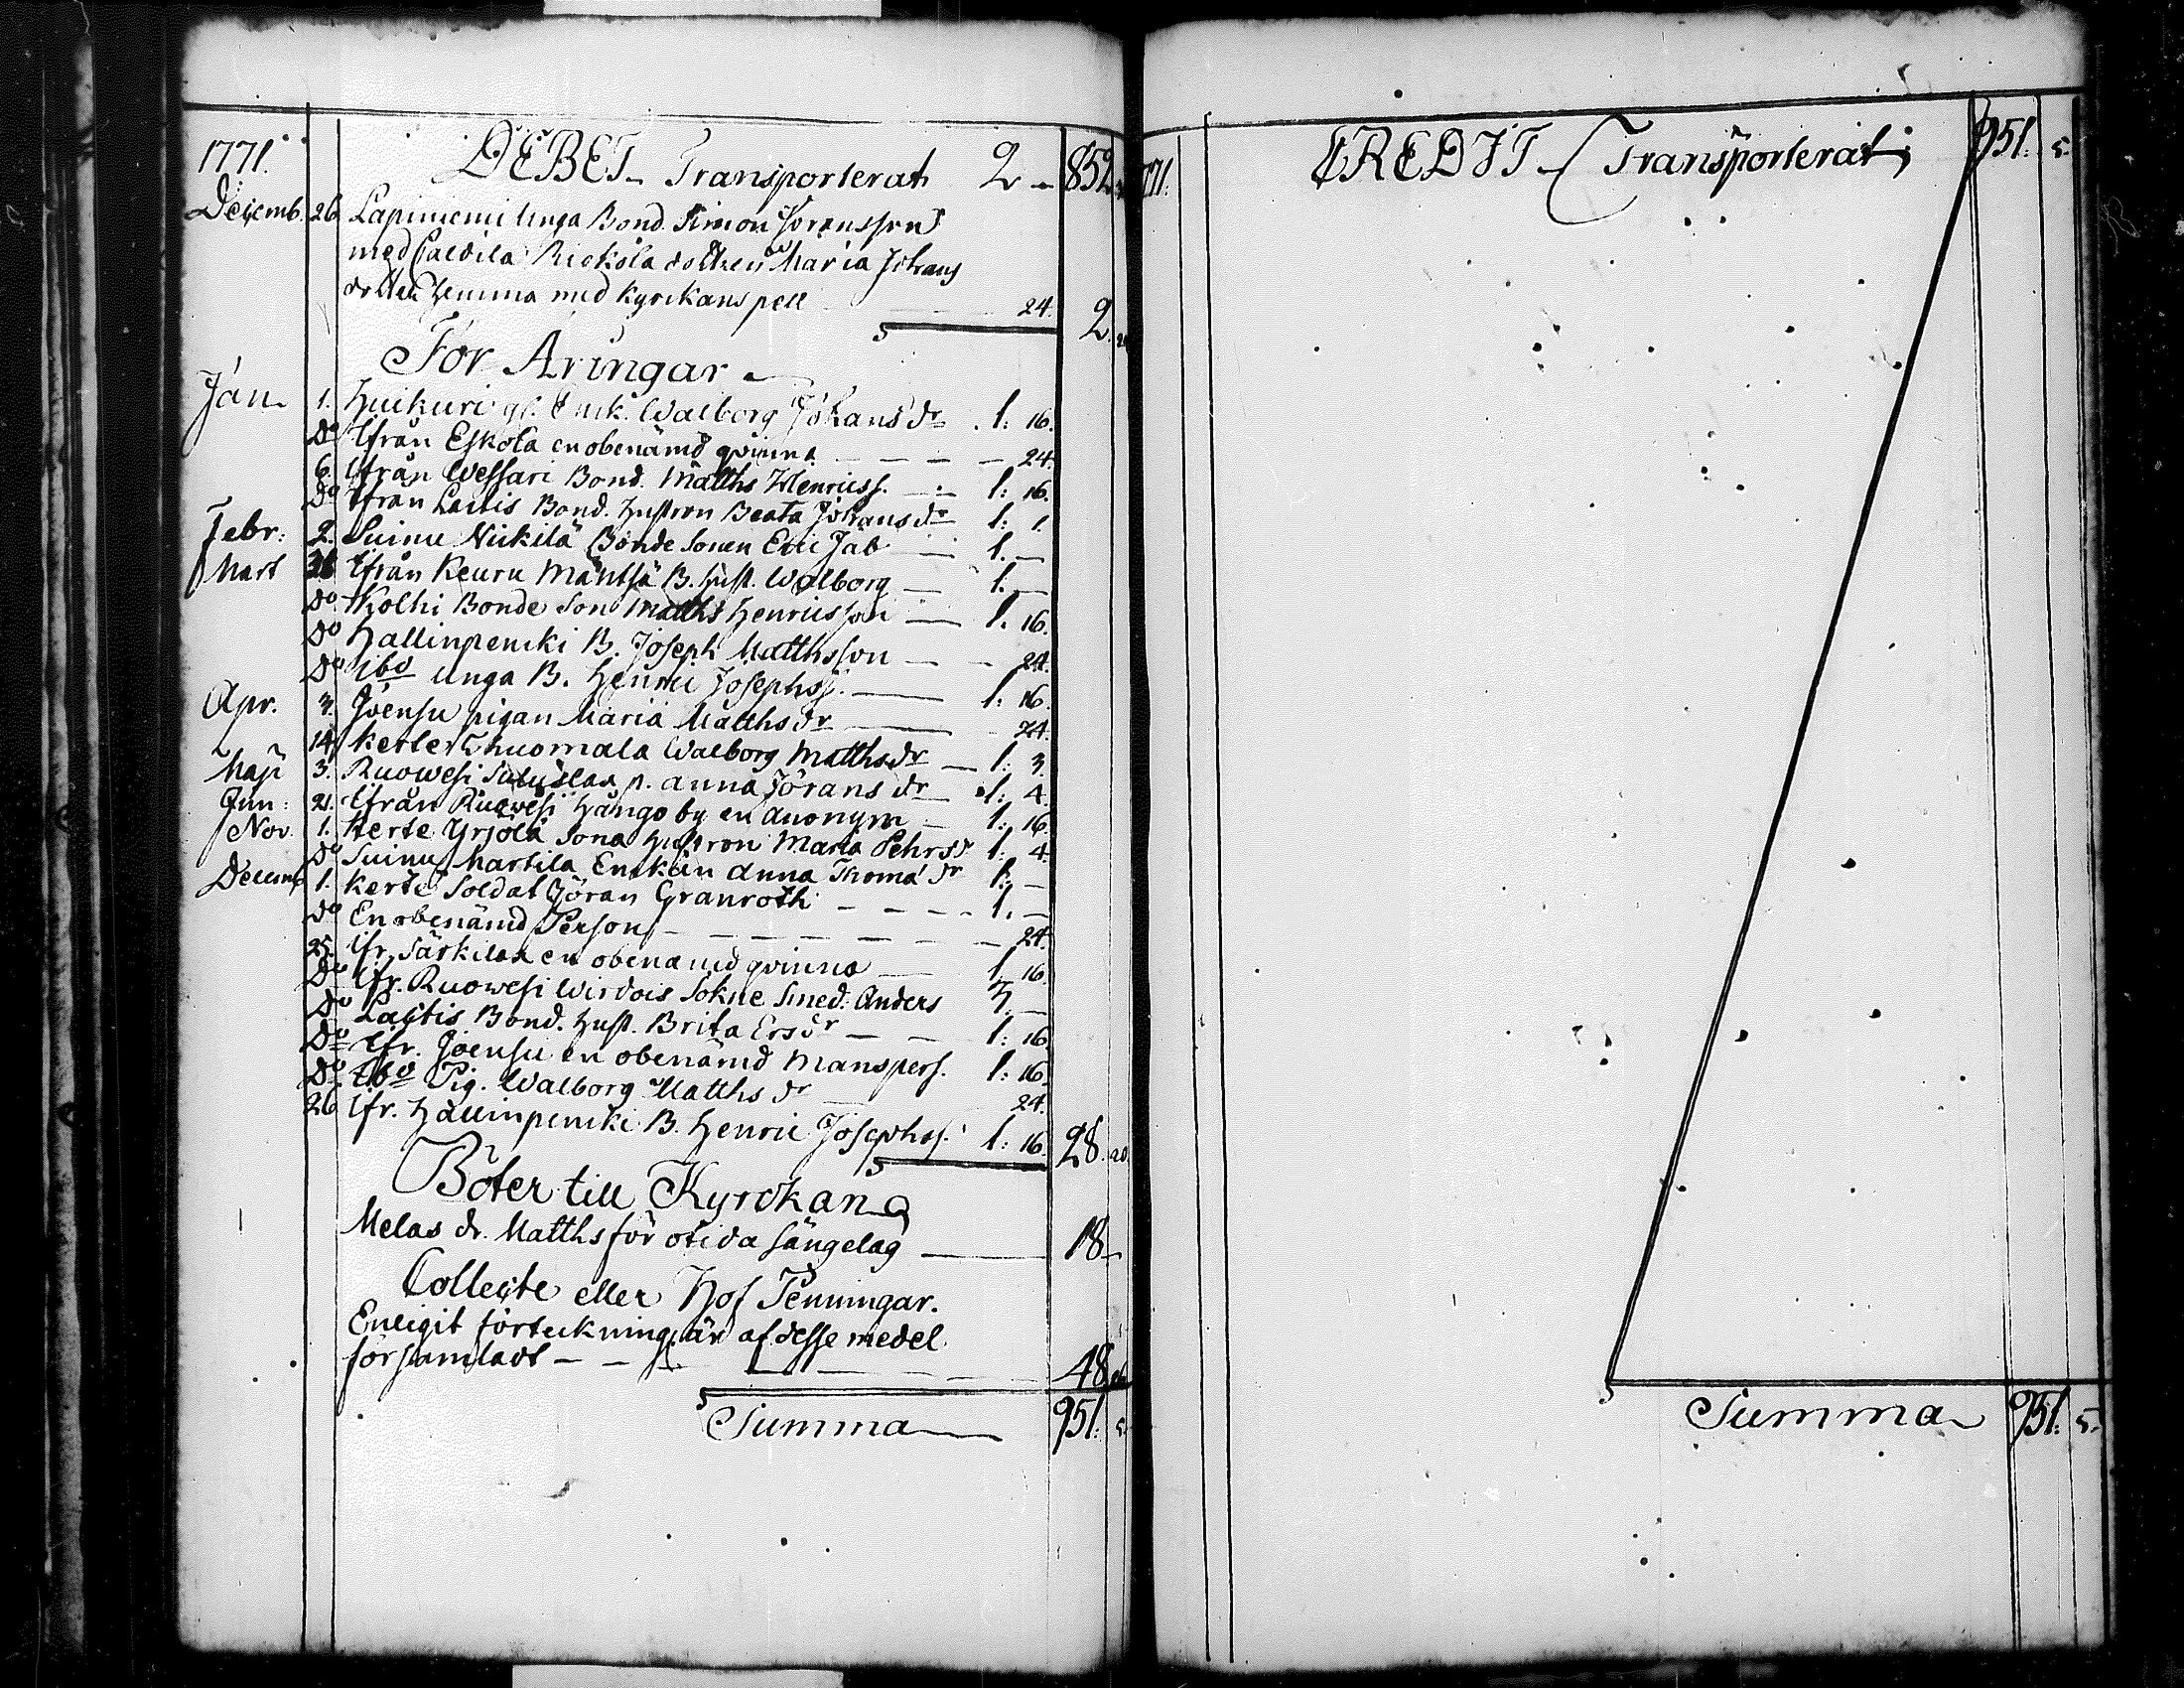 1771. DEBET Transporterat 2 — 852
Decemb. 26 Lapiniemi Unga Bond. Simon Joransson
med Paldila Rickola dottren Maria Johans
dotter hemma med Kyrckans pell 24. 2.
För Åringar
Jan. 1. Huikuri gl. Enk. Walborg Johans dr 1: 16.
Do Ifrån Eskola en obenämd qvinna — 24.
6. Ifrån Wessari Bond. Matths Henricss. 1: 16.
Do Ifrån Lautis Bond. hustron Beata Johansdr 1: 1.
Febr: 2. Suinu Nickilä Bonde Sonen Eric Jab 1. —
Mart Ifrån Keuru Mäntsä B. hust. Walborg 1. —
Do Kolhi Bonde Son Matths Henricsson 1. 16.
Do Hallinpencki B. Joseph Matthsson — 24.
Do ibd Unga B. Henric Josephss. 1: 16.
Apr. 3. Joensu pigan Maria Matthsdr 24.
14 Kerte Tuomala Walborg Matthsdr 1: 3.
Maji 3. Ruowesi p. Anna Jörans dr 1: 4.
Jun: 21. Ifrån Ruowesi Hango by en Anonym 1: 16.
Nov. 1. Kerte Yrjölä Sona hustron Maria Pehrsd 1: 4.
Do Suinu Martila Enckan Anna Thoma dr 1: —
Decemb 1. Kerte Soldat Jöran Granroth 1. —
Do En obenämd Person — 24.
25. ifr. Särkilax en obenamd qvinna 1. 16.
Do ifr. Ruowesi Wirdois Sokne Smed: Anders
Do Lautis Bond. hust. Brita Ersdr 1: 16.
Do ifr. Joensu en obenämd Manspers. 1: 16.
Do ibd Pig. Walborg Matths dr 24.
26 ifr. Hallinpencki B. Henric Josephss. 1: 16. 28. 20.
Böter till Kyrckan
Melas dr. Matths för otida sängelag 18 —
Collecte eller Hof Penningar.
Enligit förteckning är af desse medel
församladt — 48
Summa 951. 5.
1771. CREDIT Transporterat 951: 5.
Summa 951: 5.